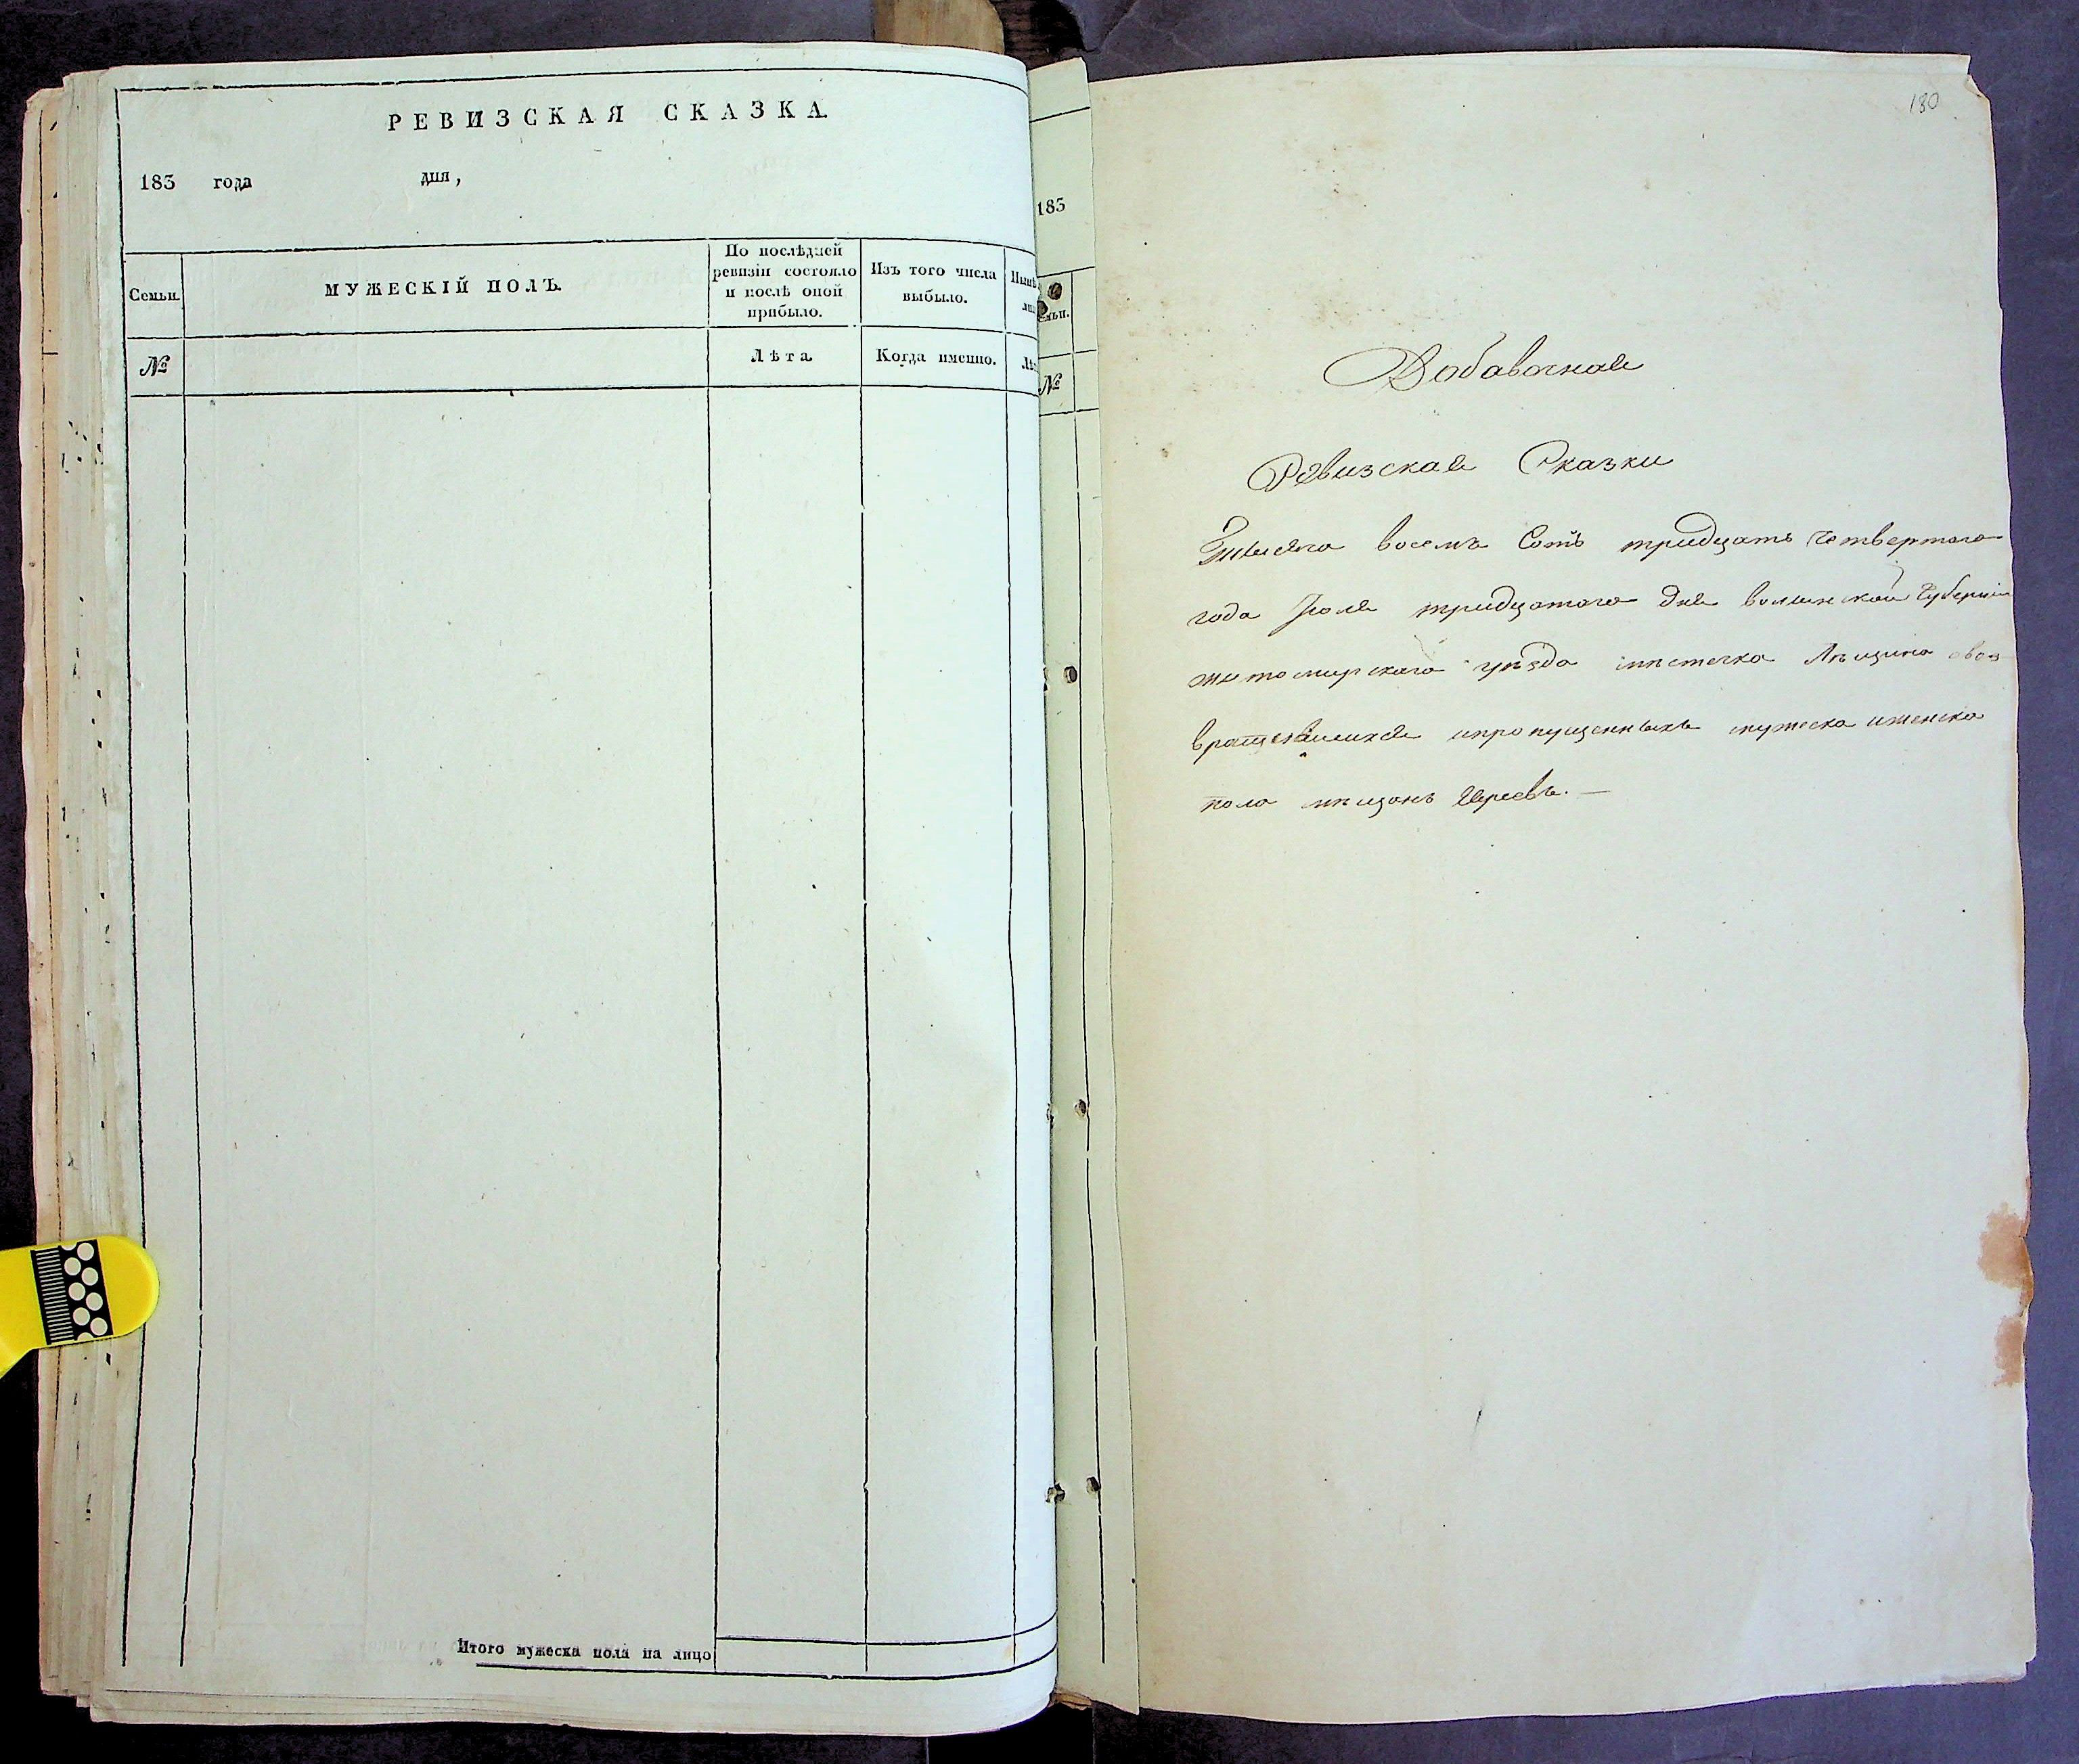 РЕВИЗСКАЯ СКАЗКА
183 года дня,
Семьи.
МУЖЕСКІЙ ПОЛЪ.
По послѣдней
ревизіи состояло
и послѣ оной
прибыло.
Изъ того числа
выбыло.
№
Лѣта
Когда именно.
Итого мужеска пола на лицо
183
№
180
Добавочная
Ревизская Сказки
Тысяча восемь Сотъ тридцать четвертого
года Іюля тридцатого дня волынской Губерніи
житомирскаго уѣзда мѣстечка
вратившихся ипропущенныхъ мужеска иженска
пола мѣщанъ Евреевъ. —